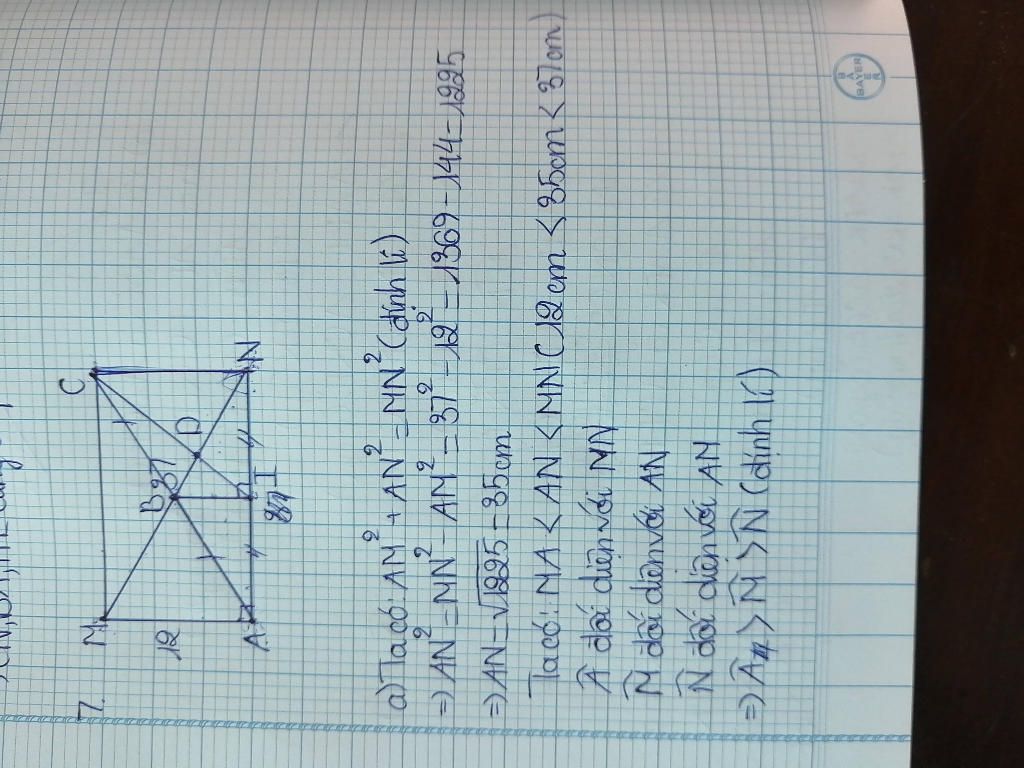 7.
M
C
12
B
37
D
A
I
N
a) Ta có: AM² + AN² = MN² (định lí)
=> AN² = MN² - AM² = 37² - 12² = 1369 - 144 = 1225
=> AN = √1225 = 35cm
Ta có: MA < AN < MN (12cm < 35cm < 37cm)
Â đối diện với MN
M̂ đối diện với AN
N̂ đối diện với AM
=> Â > M̂ > N̂ (định lí)
BAYER
BAYER